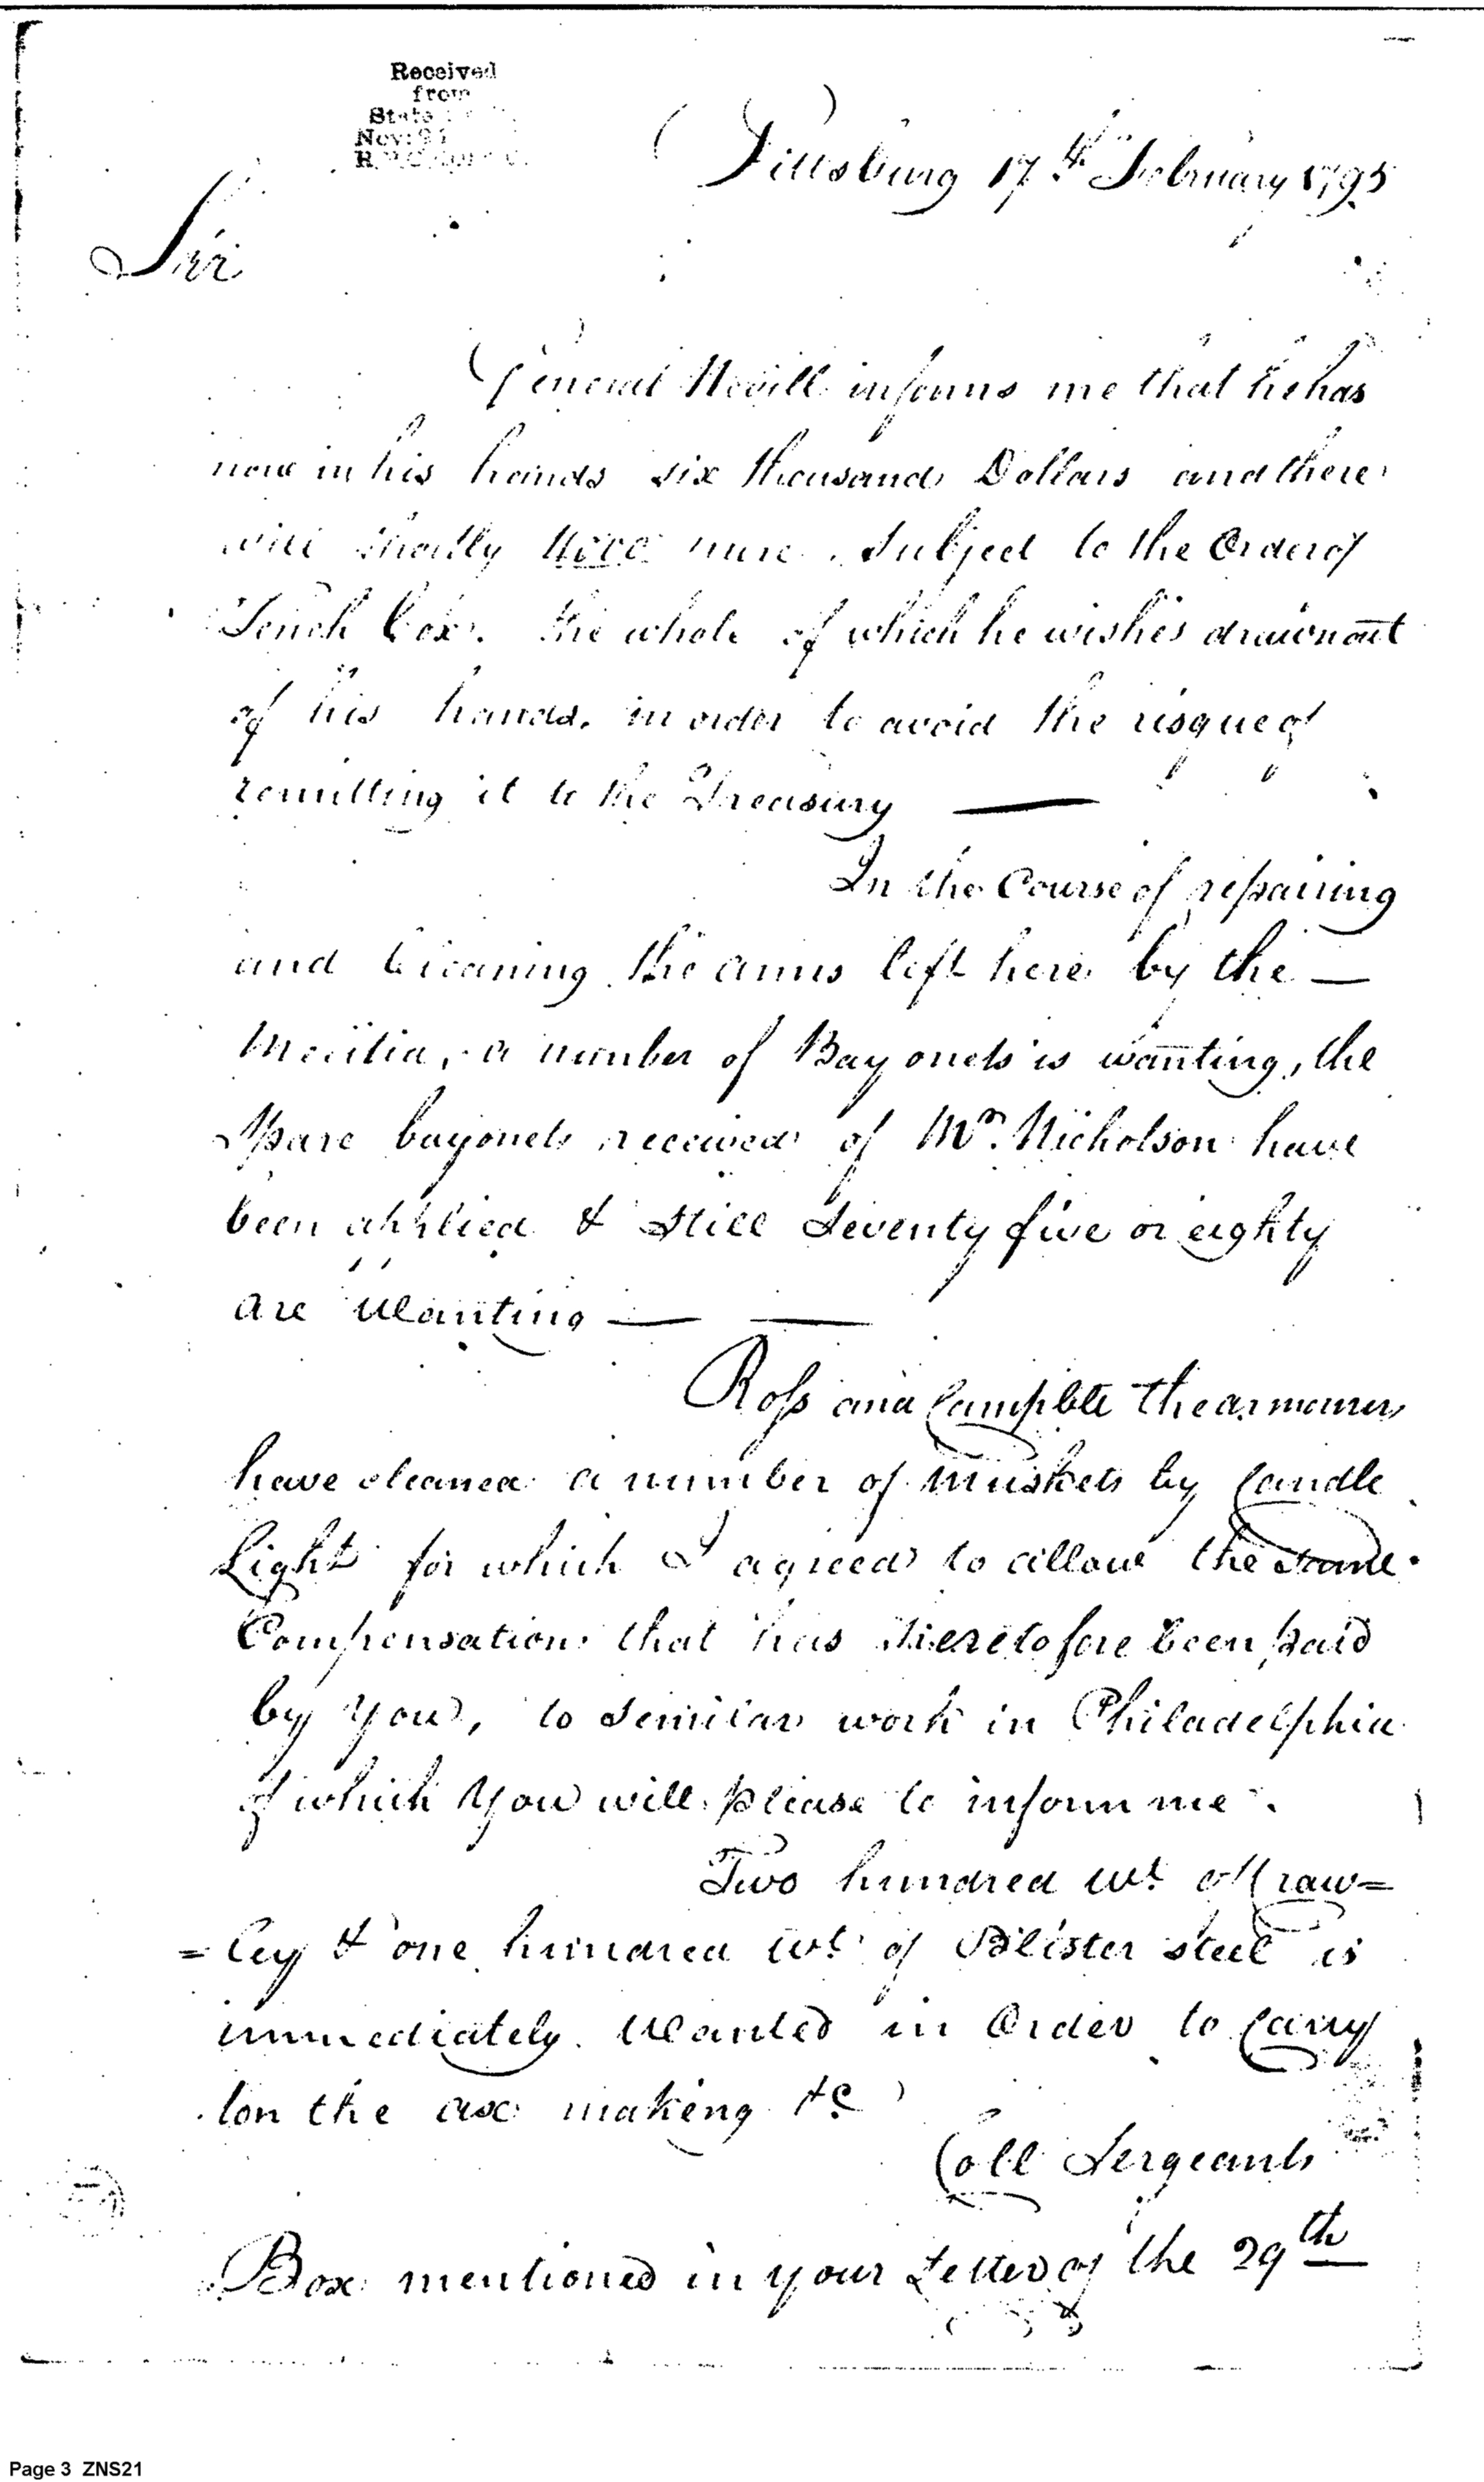 Received
from
State
Nov: 91
Pittsburg 17th February 1795
Sir
General Nevill informs me that he has
now in his hands six thousand Dollars and there
will shortly 4000 more. Subject to the Order of
Tench Cox. the whole of which he wishes drawn out
of his hands. in order to avoid the risque of
remitting it to the Treasury —
In the Course of repairing
and Cleaning the arms left here by the —
Melitia, a number of Bayonets is wanting, the
Spare bayonets received of Mr. Nicholson have
been applied & still Seventy five or eighty
are Wanting — —
Ross and Campble the armourers
have cleaned a number of muskets by Candle
Light for which I agreed to allow the same
Compensation that has heretofore been paid
by You, to Semilar work in Philadelphia
of which You will please to inform me.
Two hundred wt. of Craw=
=ley & one hundred wt. of Blister steel is
immediately Wanted in Order to Carry
on the axe making &c
Coll Sergeants
Box mentioned in your Letter of the 29th
Page 3 ZNS21